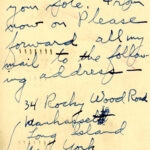 your note. From
now on Please
forward all my
mail to the follow-
ing address —
34 Rocky Wood Road
Manhasset
Long Island
New York